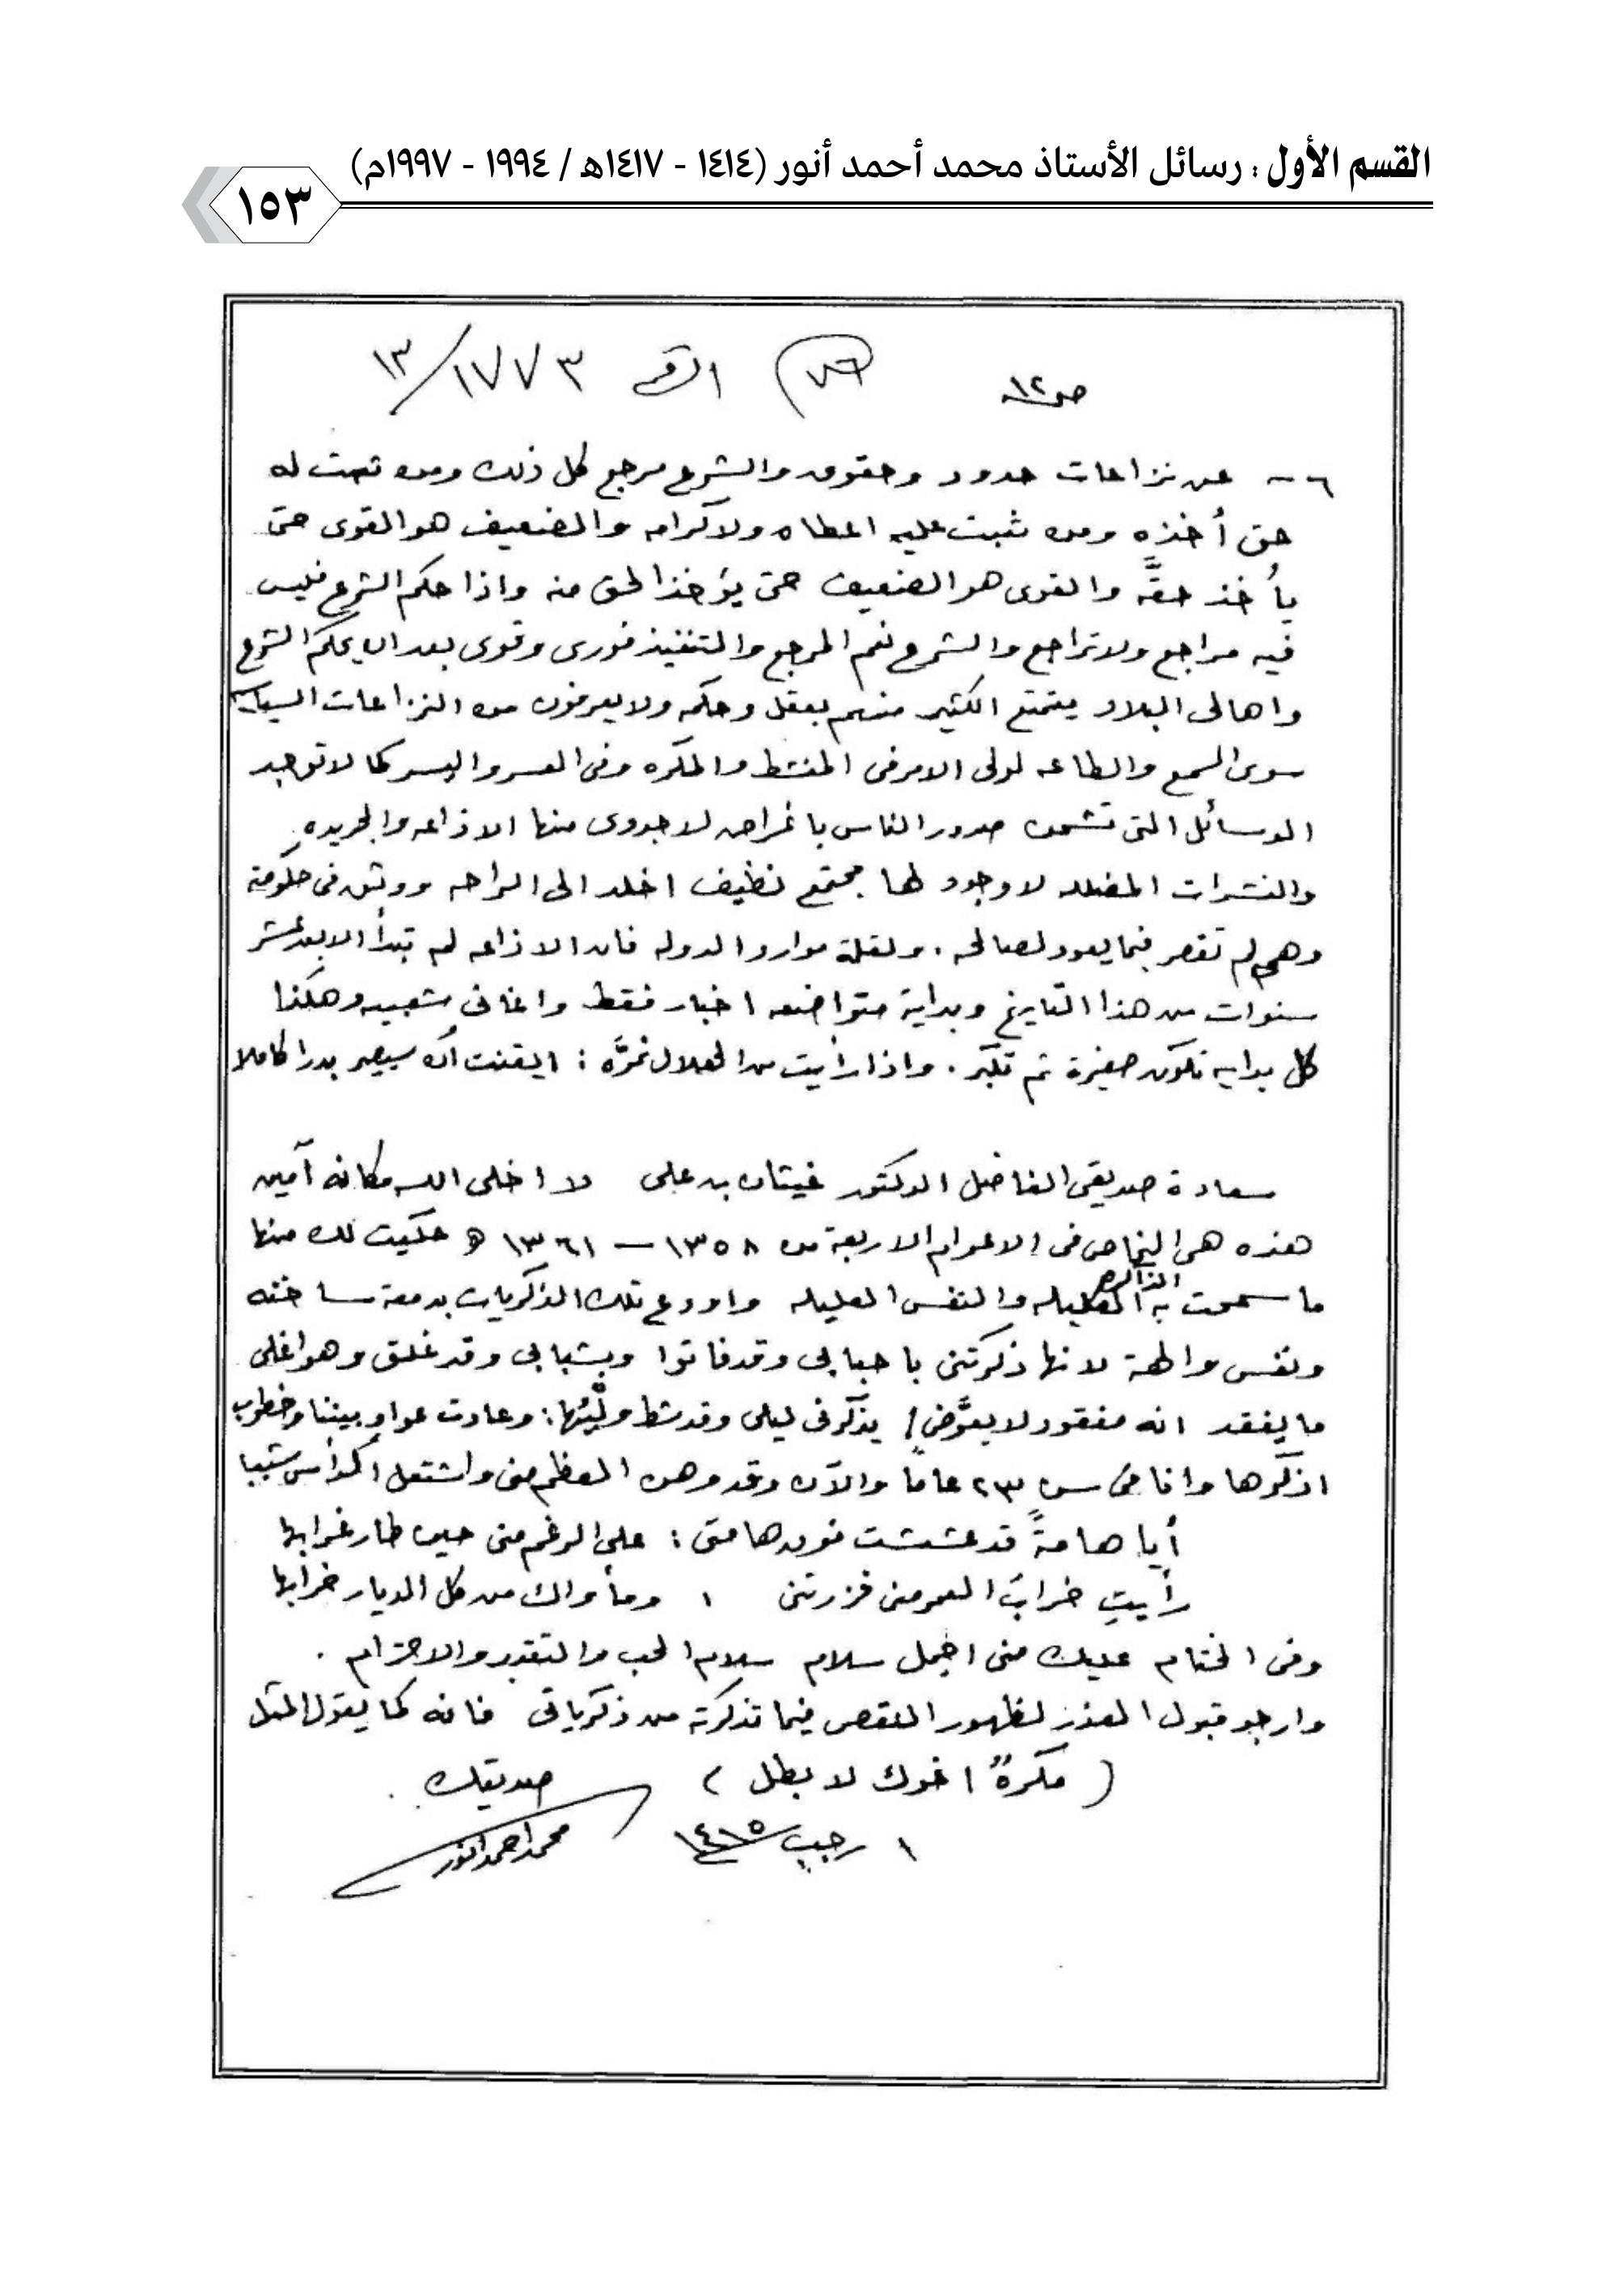 القسم الأول : رسائل الأستاذ محمد أحمد أنور (١٤١٤ - ١٤١٧هـ / ١٩٩٤ - ١٩٩٧م)
١٥٣
ص١٢ ٧٦ الرقم ١٧٧٣/١٣
٦ - عن نزاعات حدود وحقوق والشرع مرجع كل ذلك ومن ثبت له
حق أخذه ومن ثبت عليه اعطاه ولا كرامه والضعيف هو القوى حتى
يأخذ حقَّه والقوى هو الضعيف حتى يؤخذ الحق منه واذا حكم الشرع فليس
فيه مراجع ولا تراجع والشرع نعم المرجع والتنفيذ فورى وقوى بعد ان يحكم الشرع
واهالى البلاد يتمتع الكثير منهم بعقل وحكمه ولا يعرفون من النزاعات السياسيه
سوى السمع والطاعه لولى الامر فى المنشط والمكره وفى العسر واليسر كما لا توجد
الوسائل التى تشحن صدور الناس باغراض لا جدوى منها الاذاعه والجريده
والنشرات المضلله لا وجود لها مجتمع نظيف اخلد الى الراحه ووثق فى حكومة
وهى لم تقصر فيما يعود لصالحه . ولقلة موارد الدوله فان الاذاعه لم تبدأ الا بعد عشر
سنوات من هذا التاريخ وبداية متواضعه اخبار فقط واغانى شعبيه وهكذا
كل بدايه تكون صغيرة ثم تكبر . واذا رأيت من الهلال نموَّه : ايقنت أن سيصير بدرا كاملا
سعادة صديقى الفاضل الدكتور غيثان بن على لا اخلى الله مكانه آمين
هذه هى النماص فى الاعوام الاربعة من ١٣٥٨ – ١٣٦١ هـ حكيت لك منها
ما سمحت به الذاكره الكليله والنفس العليله واودع تلك الذكريات بدمعة ساخنه
ونفس والهة لانها ذكرتنى باحبابى وقد فاتوا وبشبابى وقد غلق وهو اغلى
ما يفقد انه مفقود لا يعوَّض / يذكرنى ليلى وقد شط وليُّها : وعادت عواد بيننا وخطوب
اذكرها وانا فى سن ٢٣ عاماً والآن وقد وهن العظم منى واشتعل الرأس شيبا
أيا هامةً قد عششت فوق هامتى : على الرغم منى حين طار غرابها
رأيتِ خرابَ العمر منى فزرتنى ، ومأواك من كل الديار خرابها
وفى الختام عليك منى اجمل سلام سلام الحب والتقدير والاحترام .
وارجو قبول العذر لظهور النقص فيما تذكرته من ذكرياتى فانه كما يقول المثل
( مكرهٌ اخوك لا بطل ) صديقك
١ رجب ١٤١٥ محمد احمد انور